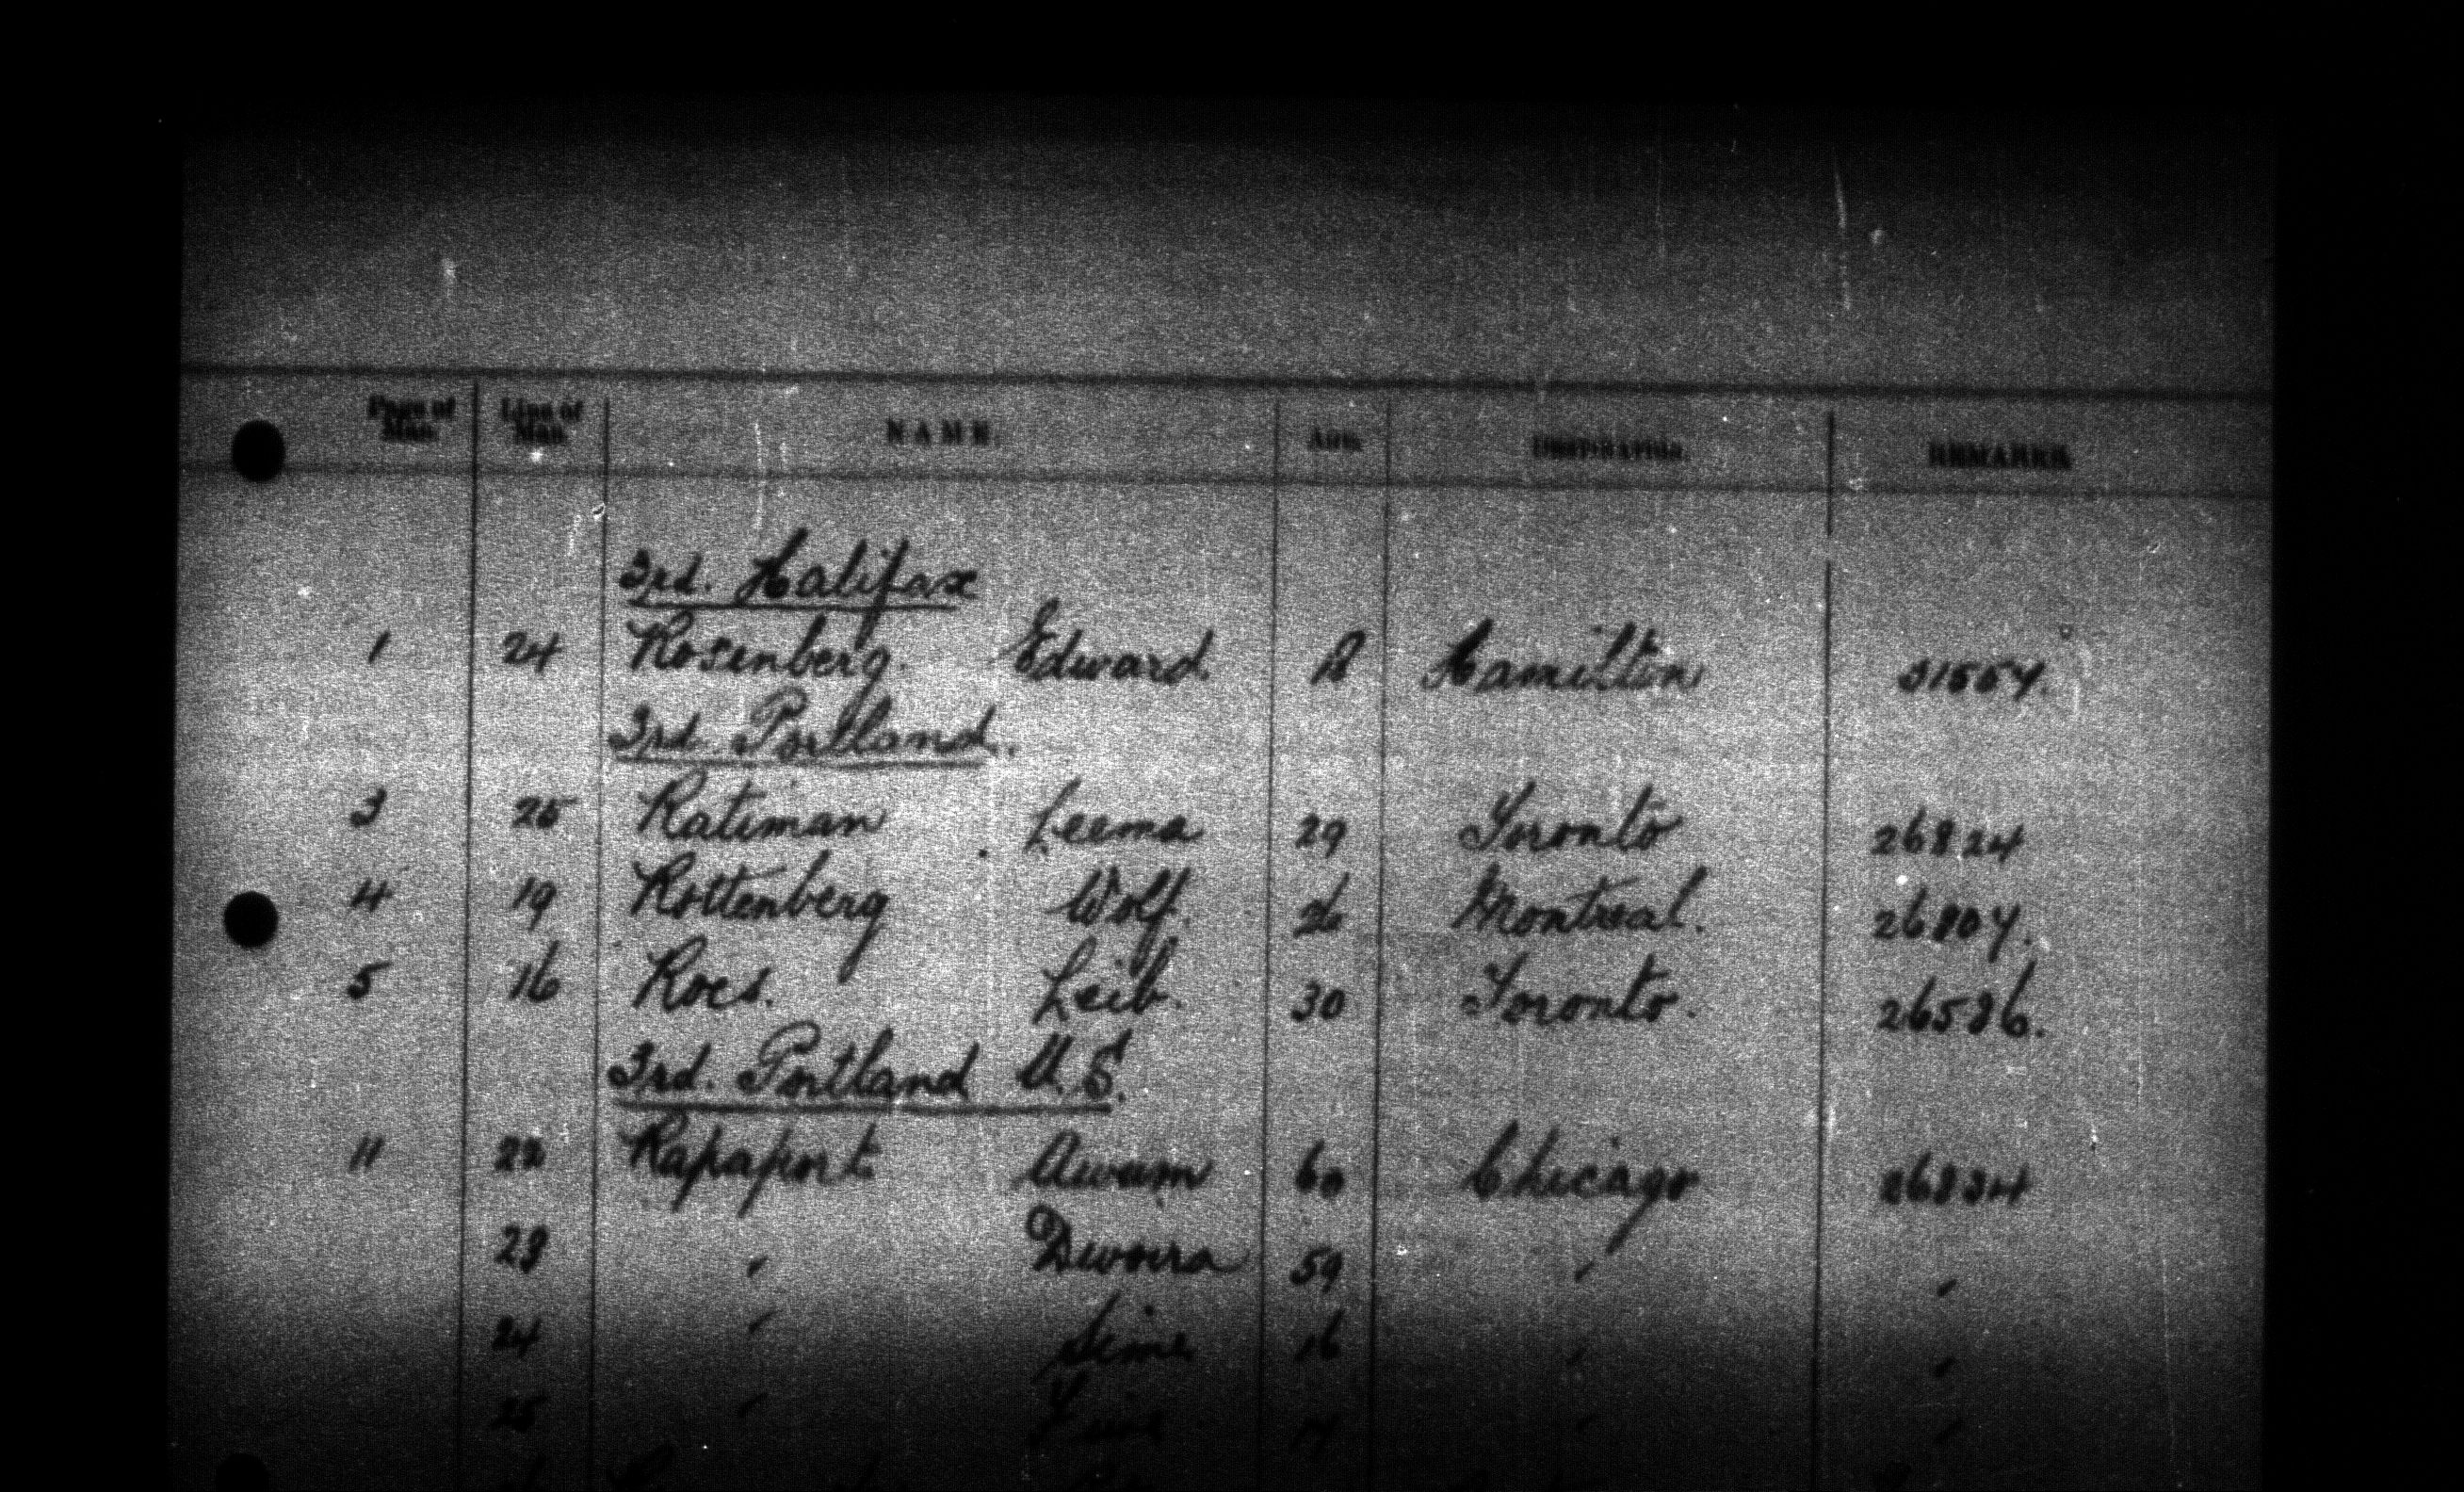 Page of Man. Line of Man. NAME. AGE. DESTINATION. REMARKS.
3rd. Halifax
1 24 Rosenberg. Edward. A Hamilton 31557.
3rd. Portland.
3 25 Ratiman Leema 29 Toronto 26824
4 19 Rottenberg Wolf. 26 Montreal. 26807.
5 16 Roes. Leib. 30 Toronto. 26536.
3rd. Portland U.S.
11 22 Rapaport Awum 60 Chicago 26834
23 " Dwoira 59 " "
24 " Sime 16 " "
25 " " "